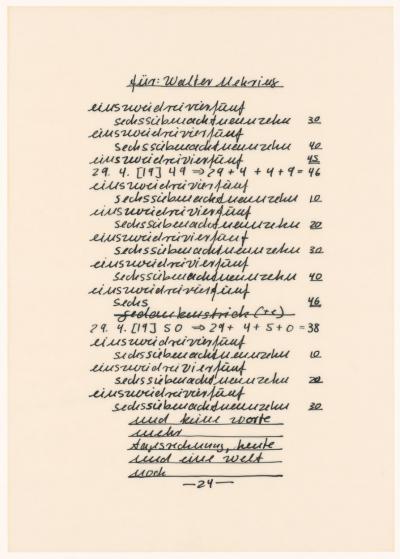 für: Walter Mehring
einszweidreivierfünf
sechssiebenachtneunzehn 30
einszweidreivierfünf
sechssiebenachtneunzehn 40
einszweidreivierfünf 45
29. 4. [19] 49 ⇒ 29 + 4 + 4 + 9 = 46
einszweidreivierfünf
sechssiebenachtneunzehn 10
einszweidreivierfünf
sechssiebenachtneunzehn 20
einszweidreivierfünf
sechssiebenachtneunzehn 30
einszweidreivierfünf
sechssiebenachtneunzehn 40
einszweidreivierfünf
sechs 46
gedankenstrich (+c)
29. 4. [19] 50 ⇒ 29 + 4 + 5 + 0 = 38
einszweidreivierfünf
sechssiebenachtneunzehn 10
einszweidreivierfünf
sechssiebenachtneunzehn 20
einszweidreivierfünf
sechssiebenachtneunzehn 30
und keine worte
mehr
tagesrechnung, heute
und eine welt
noch
—24—